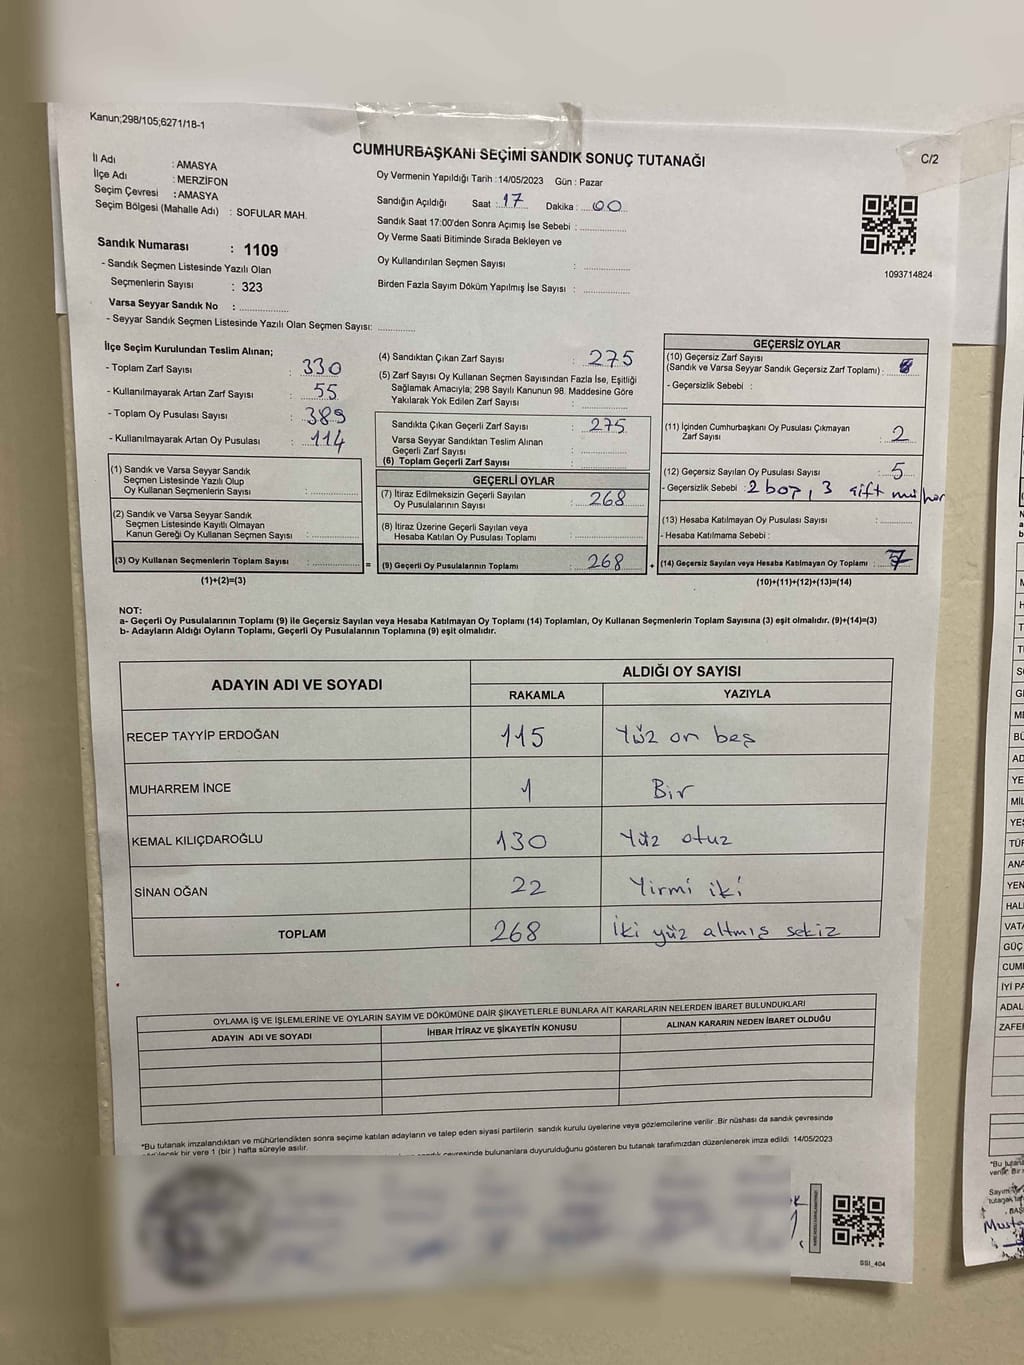 Kanun;298/105;6271/18-1
CUMHURBAŞKANI SEÇİMİ SANDIK SONUÇ TUTANAĞI
C/2
İl Adı : AMASYA
İlçe Adı : MERZİFON
Seçim Çevresi : AMASYA
Seçim Bölgesi (Mahalle Adı) : SOFULAR MAH.
Sandık Numarası : 1109
- Sandık Seçmen Listesinde Yazılı Olan
Seçmenlerin Sayısı : 323
Varsa Seyyar Sandık No : ................
- Seyyar Sandık Seçmen Listesinde Yazılı Olan Seçmen Sayısı: ............
Oy Vermenin Yapıldığı Tarih :14/05/2023 Gün : Pazar
Sandığın Açıldığı Saat : 17 Dakika : 00
Sandık Saat 17:00'den Sonra Açımış İse Sebebi : ................
Oy Verme Saati Bitiminde Sırada Bekleyen ve
Oy Kullandırılan Seçmen Sayısı : ................
Birden Fazla Sayım Döküm Yapılmış İse Sayısı : ................
1093714824
İlçe Seçim Kurulundan Teslim Alınan;
- Toplam Zarf Sayısı : 330
- Kullanılmayarak Artan Zarf Sayısı : 55
- Toplam Oy Pusulası Sayısı : 389
- Kullanılmayarak Artan Oy Pusulası : 114
(1) Sandık ve Varsa Seyyar Sandık
Seçmen Listesinde Yazılı Olup
Oy Kullanan Seçmenlerin Sayısı : ................
(2) Sandık ve Varsa Seyyar Sandık
Seçmen Listesinde Kayıtlı Olmayan
Kanun Gereği Oy Kullanan Seçmen Sayısı : ................
(3) Oy Kullanan Seçmenlerin Toplam Sayısı : ................ =
(1)+(2)=(3)
(4) Sandıktan Çıkan Zarf Sayısı : 275
(5) Zarf Sayısı Oy Kullanan Seçmen Sayısından Fazla İse, Eşitliği
Sağlamak Amacıyla; 298 Sayılı Kanunun 98. Maddesine Göre
Yakılarak Yok Edilen Zarf Sayısı : ................
Sandıkta Çıkan Geçerli Zarf Sayısı : 275
Varsa Seyyar Sandıktan Teslim Alınan
Geçerli Zarf Sayısı : ................
(6) Toplam Geçerli Zarf Sayısı : ................
GEÇERLİ OYLAR
(7) İtiraz Edilmeksizin Geçerli Sayılan
Oy Pusulalarının Sayısı : 268
(8) İtiraz Üzerine Geçerli Sayılan veya
Hesaba Katılan Oy Pusulası Toplamı : ................
(9) Geçerli Oy Pusulalarının Toplamı : 268 +
GEÇERSİZ OYLAR
(10) Geçersiz Zarf Sayısı
(Sandık ve Varsa Seyyar Sandık Geçersiz Zarf Toplamı) :
- Geçersizlik Sebebi :
(11) İçinden Cumhurbaşkanı Oy Pusulası Çıkmayan
Zarf Sayısı : 2
(12) Geçersiz Sayılan Oy Pusulası Sayısı : 5
- Geçersizlik Sebebi : 2 boş, 3 çift mühür
(13) Hesaba Katılmayan Oy Pusulası Sayısı : ................
- Hesaba Katılmama Sebebi :
(14) Geçersiz Sayılan veya Hesaba Katılmayan Oy Toplamı : 7
(10)+(11)+(12)+(13)=(14)
NOT:
a- Geçerli Oy Pusulalarının Toplamı (9) ile Geçersiz Sayılan veya Hesaba Katılmayan Oy Toplamı (14) Toplamları, Oy Kullanan Seçmenlerin Toplam Sayısına (3) eşit olmalıdır. (9)+(14)=(3)
b- Adayların Aldığı Oyların Toplamı, Geçerli Oy Pusulalarının Toplamına (9) eşit olmalıdır.
ADAYIN ADI VE SOYADI ALDIĞI OY SAYISI
RAKAMLA YAZIYLA
RECEP TAYYİP ERDOĞAN 115 Yüz on beş
MUHARREM İNCE 1 Bir
KEMAL KILIÇDAROĞLU 130 Yüz otuz
SİNAN OĞAN 22 Yirmi iki
TOPLAM 268 İki yüz altmış sekiz
OYLAMA İŞ VE İŞLEMLERİNE VE OYLARIN SAYIM VE DÖKÜMÜNE DAİR ŞİKAYETLERLE BUNLARA AİT KARARLARIN NELERDEN İBARET BULUNDUKLARI
ADAYIN ADI VE SOYADI İHBAR İTİRAZ VE ŞİKAYETİN KONUSU ALINAN KARARIN NEDEN İBARET OLDUĞU
*Bu tutanak imzalandıktan ve mühürlendikten sonra seçime katılan adayların ve talep eden siyasi partilerin sandık kurulu üyelerine veya gözlemcilerine verilir. Bir nüshası da sandık çevresinde
bir yere 1 (bir) hafta süreyle asılır.
çevresinde bulunanlara duyurulduğunu gösteren bu tutanak tarafımızdan düzenlenerek imza edildi. 14/05/2023
SSI_404